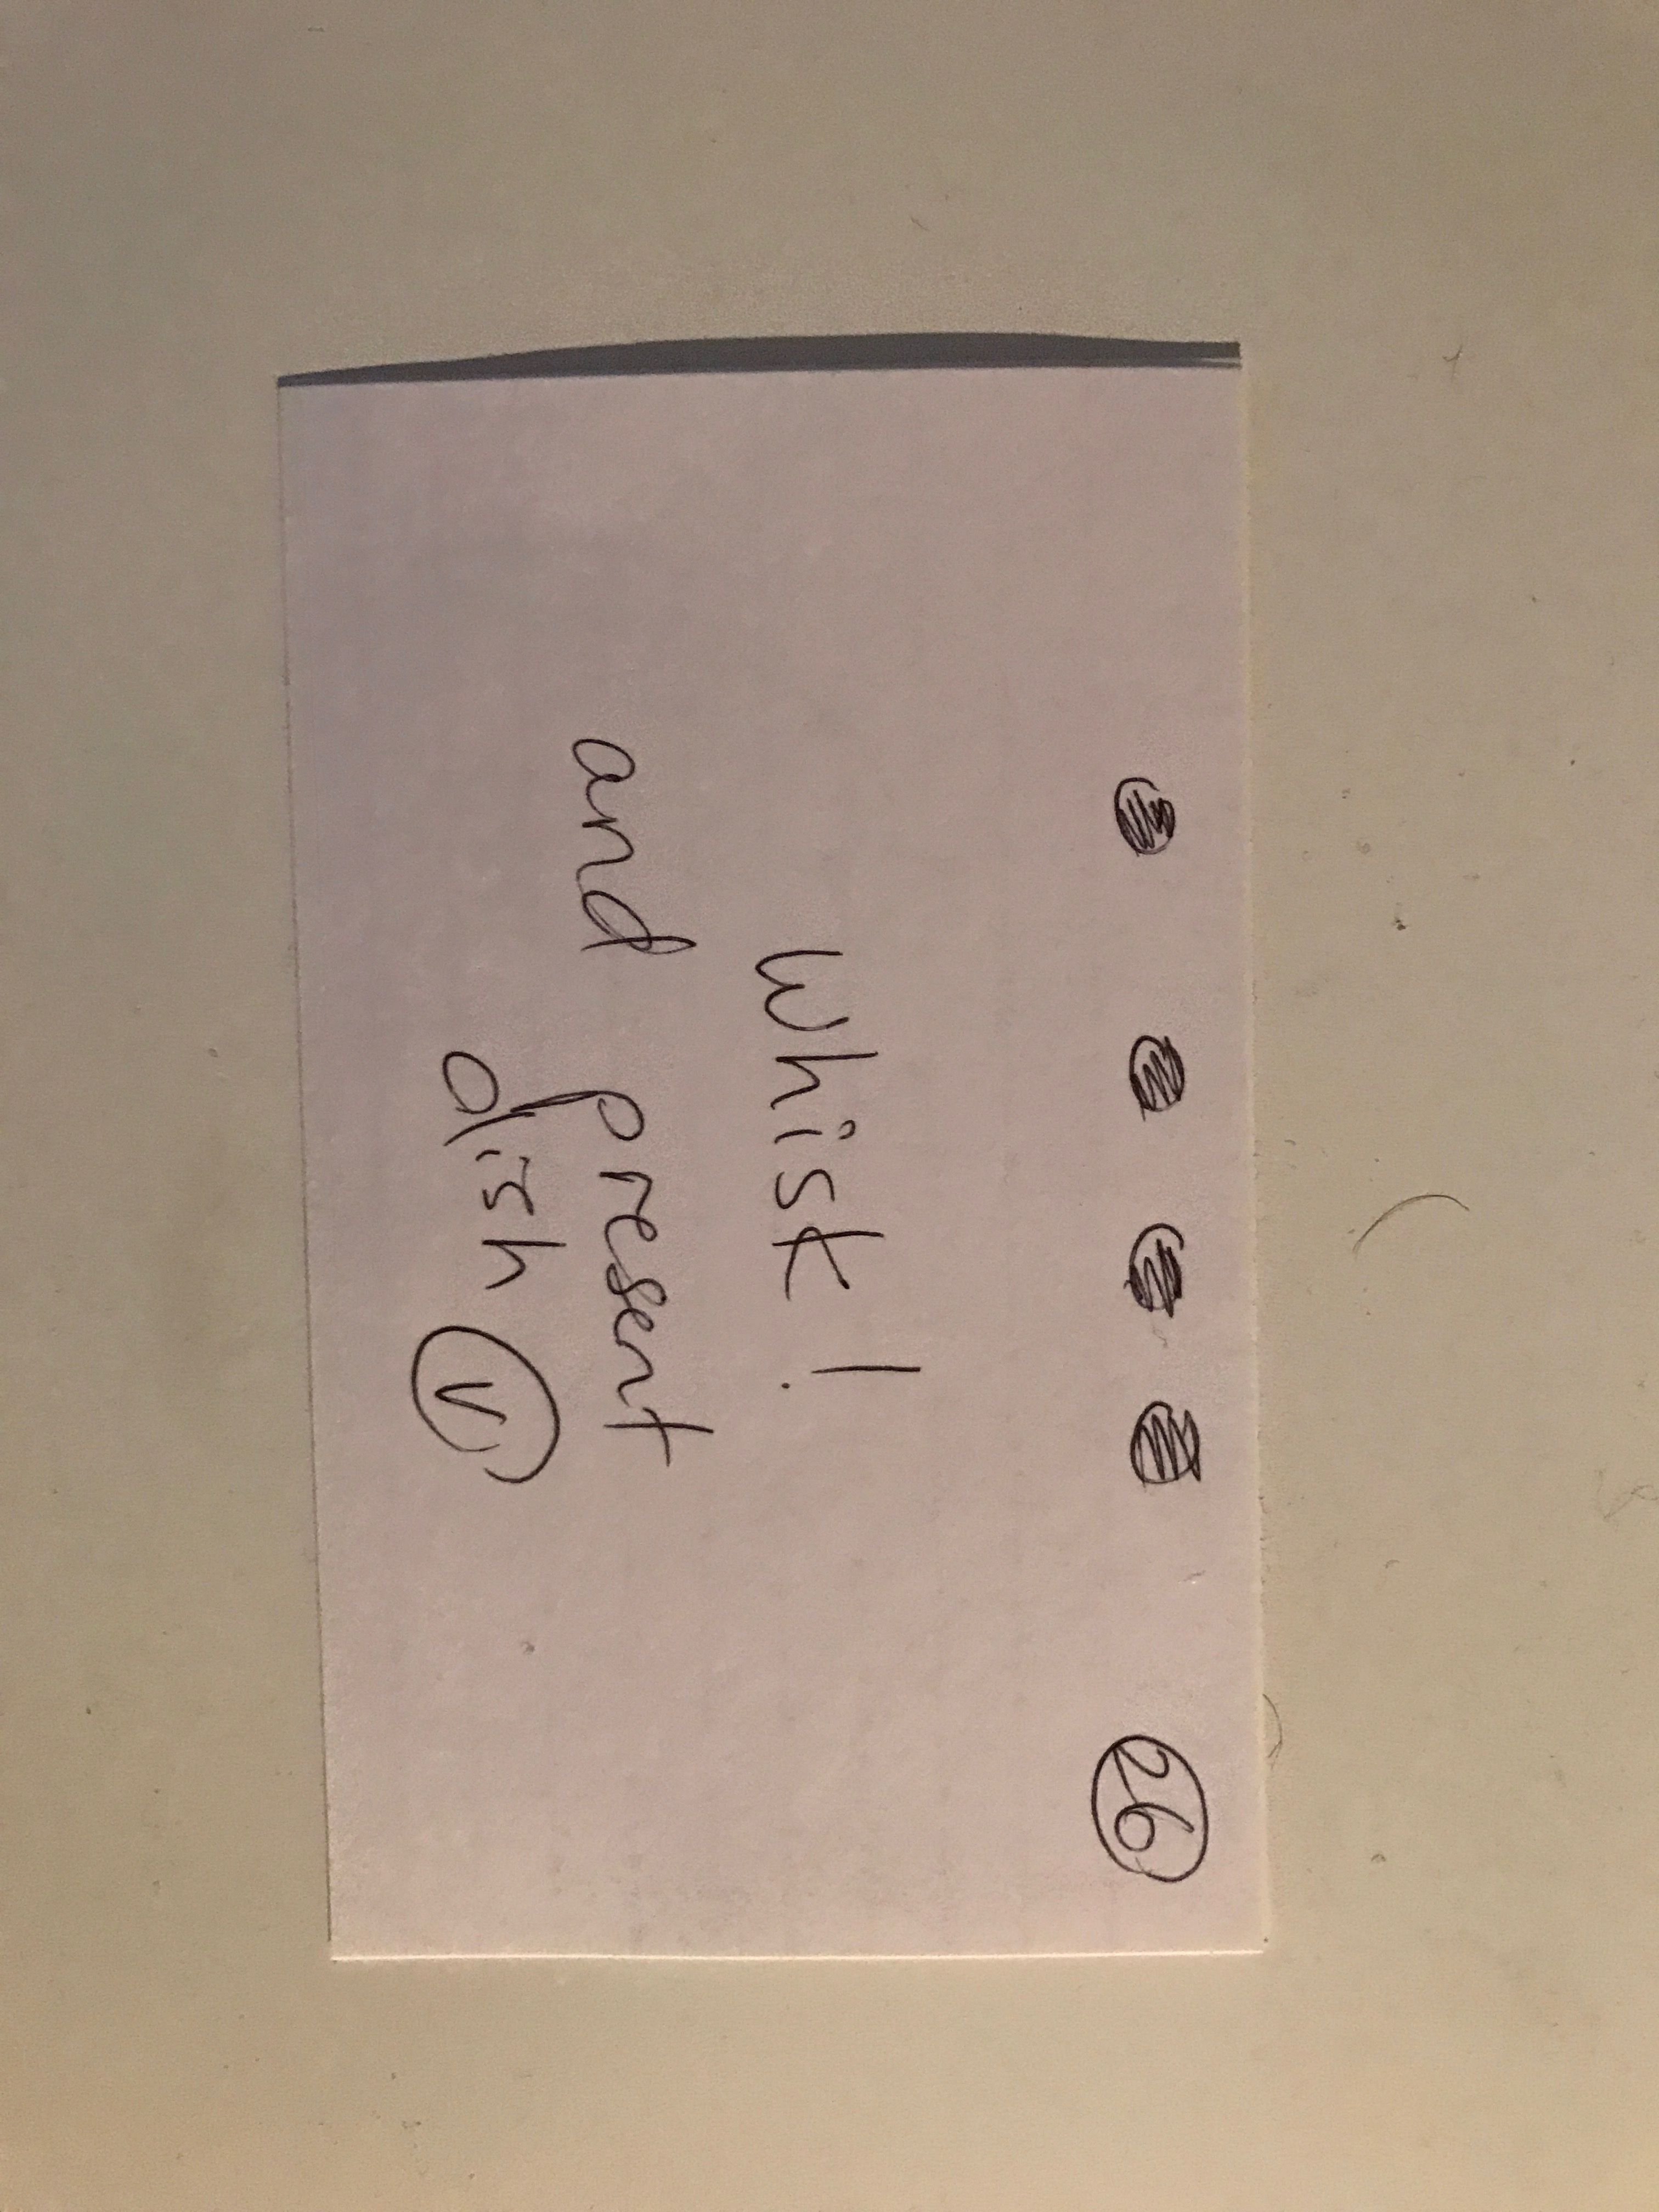 26
Whisk!
and present
dish